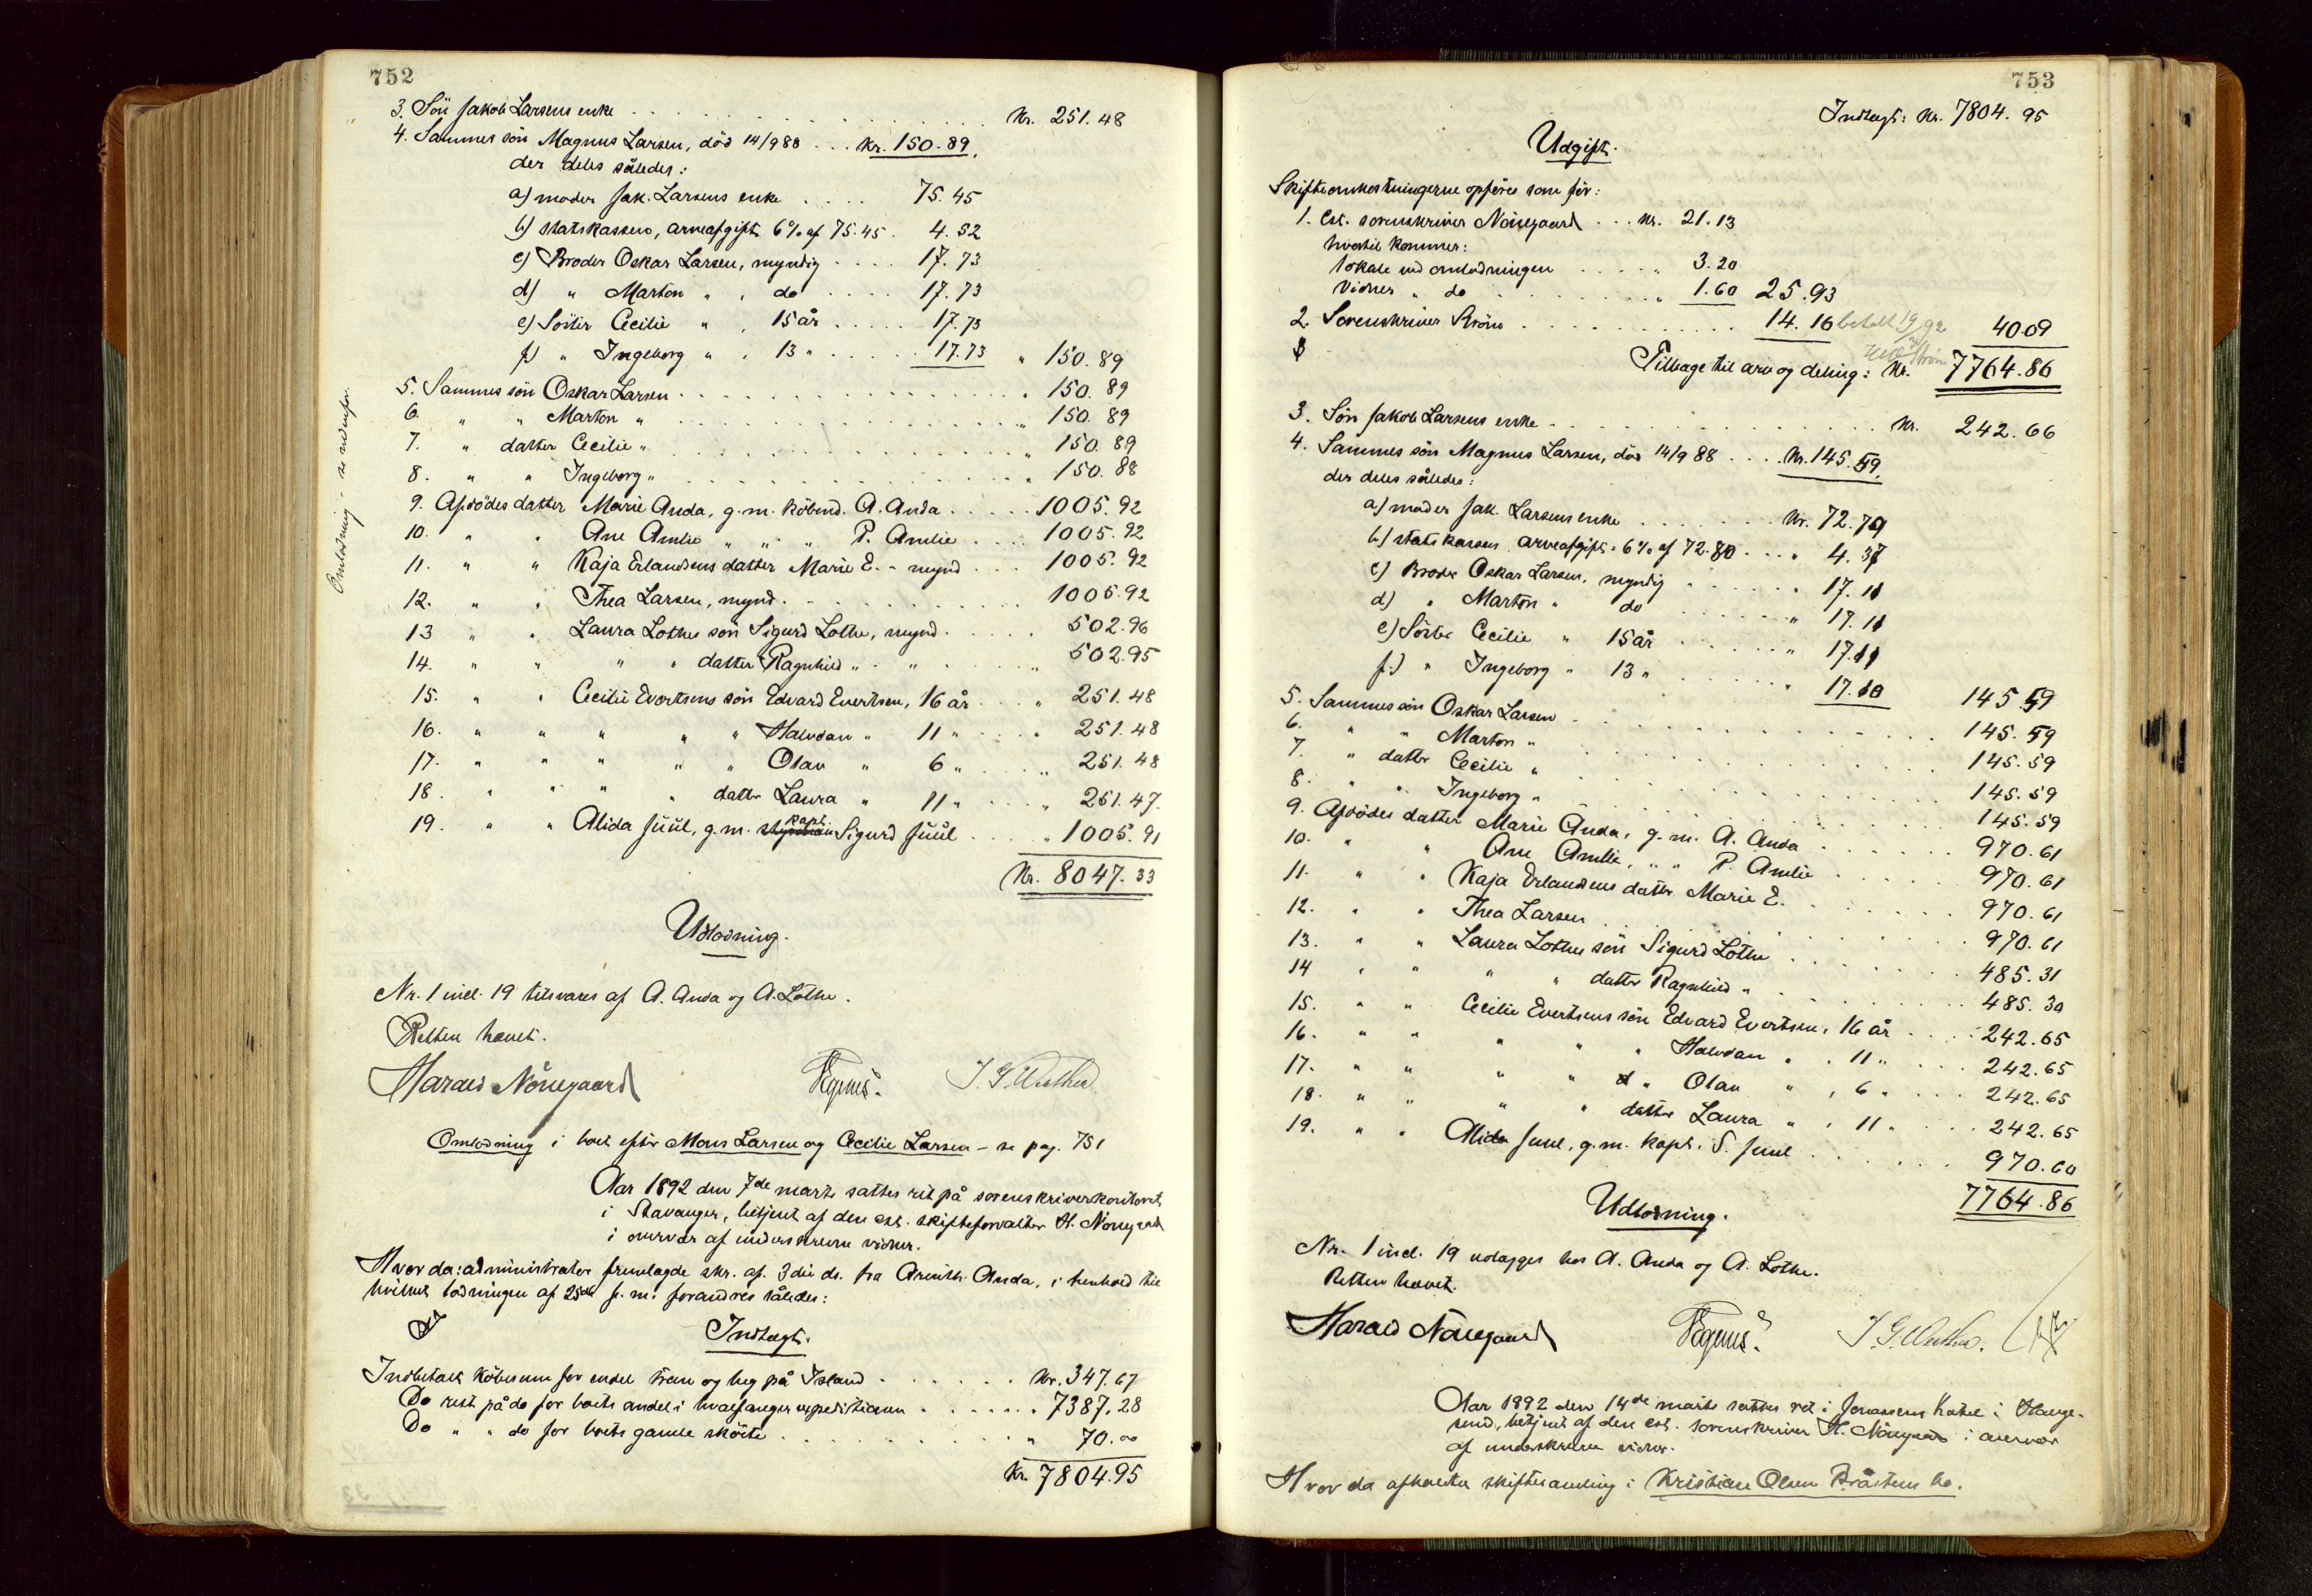 752
3. Sön Jakob Larsens enke . . . Kr. 251.48
4. Sammes sön Magnus Larsen, död 14/9 88 . . . Kr. 150.89.
der deles således:
a) moder Jak. Larsens enke . . . . 75.45
b) statskassen, arveafgift 6% af 75.45 . 4.52
c) Broder Oskar Larsen, myndig . . . . 17.73
d) " Marton " , do . . . . 17.73
e) Söster Cecilie " , 15 år . . . . . 17.73
f.) " Ingeborg " , 13 " . . . . . 17.73 " 150.89
5. Sammes sön Oskar Larsen . . . " 150.89
6. " " Marton " . . . " 150.89
7. " datter Cecilie " . . . " 150.89
8. " " Ingeborg " . . . " 150.88
9. Afdödes datter Marie Anda, g.m. köbmd. A. Anda . . . . . 1005.92
10. " " Ane Amlie " " " P. Amlie . . . . 1005.92
11. " " Kaja Erlandsens datter Marie E. - mynd . . . 1005.92
12. " " Thea Larsen, mynd. . . . 1005.92
13 " " Laura Lothes sön Sigurd Lothe, mynd. . . . . . 502.96
14. " " " " datter Ragnhild " - " . . . " 502.95
15. " " Cecilie Evertsens sön Edvard Evertsen, 16 år . . . " 251.48
16. " " " " " Halvdan " 11 " . . . . " 251.48
17. " " " " " Olav " 6 " . . . . " 251.48
18. " " " " datter Laura " 11 " . . . . " 251.47.
19. " " Alida Júúl, g.m. kapt. Sigurd Júúl . . . . " 1005.91
Kr. 8047.33
Omlodning - se nedenfor.
Udlodning.
Nr. 1 incl. 19 tilsvares af A. Anda og A. Lothe.
Retten hævet.
Harald Nörregaard J. G. Wathne
Omlodning i boet efter Mons Larsen og Cecilie Larsen - se pag. 751
Aar 1892 den 7de marts sattes ret på sorenskriverkontoret
i Stavanger, betjent af den cst. skifteforvalter H. Nörregaard
i overvær af underskrevne vidner.
Hvor da: administrator fremlagde skr. af 3die ds. fra Arnth. Anda, i henhold til
hvilket lodningen af 25de f.m. forandres således:
Indtægt.
Indbetalt köbesum for endel tran og beg på Island . . . . . . Kr. 347.67
Do rest på do for boets andel i hvalfangerexpeditionen . . . . . . . 7387.28
Do " " do for boets gamle sköite . . . " 70.00
Kr. 7804.95
753
Indtægt: Kr. 7804.95
Udgift.
Skifteomkostningerne opföres som för:
1. Cst. sorenskriver Nörregaard . . . Kr. 21.13
hvortil kommer:
lokale ved omlodningen . . . . . " 3.20
Vidner " do . . . " 1.60 25.93
2. Sorenskriver Ström . . . 14.16 betalt 19/ 92 40.09
Tilbage til arv og deling: Kr. 7764.86
3. Sön Jakob Larsens enke . . . Kr. 242.66
4. Sammes sön Magnus Larsen, död 14/9 88 . . . . Kr. 145.59.
der deles således:
a) moder Jak. Larsens enke . . . . . . . Kr. 72.79
b) statskassen arveafgift 6% af 72.80 . . . " 4.37
c) Broder Oskar Larsen, myndig . . . . . . " 17.11
d) " Marton " do . . . . . . " 17.11
e) Söster Cecilie " 15 år . . . . . . " 17.11
f.) " Ingeborg " 13 " . . . . . . " 17.10 145.59
5. Sammes sön Oskar Larsen . . . 145.59
6. " " Marton " . . . 145.59
7. " datter Cecilie " . . . 145.59
8. " " Ingeborg " . . . 145.59
9. Afdödes datter Marie Anda, g.m. A. Anda . . . . . . 970.61
10. " " Ane Amlie, " " P. Amlie . . . . . 970.61
11. " " Kaja Erlandsens datter Marie E. . . . . . . . 970.61
12. " " Thea Larsen . . . 970.61
13. " " Laura Lothes sön Sigurd Lothe . . . . . . 485.31
14 " " " " datter Ragnhild " . . . 485.30
15. " " Cecilie Evertsens sön Edvard Evertsen, 16 år . . . . 242.65
16. " " " " " Halvdan " , 11 " . . . . 242.65
17. " " " " " Olav " , 6 " . . . . 242.65
18. " " " " datter Laura " , 11 " . . . . 242.65
19. " " Alida Juul, g.m. kapt. S. Juul . . . . . . 970.60
7764.86
Udlodning.
Nr. 1 incl. 19 udlægges hos A. Anda og A. Lothe.
Retten hævet.
Harald Nörregaard J. G. Wathne.
Aar 1892 den 14de marts sattes ret i Jonassens hotel i Hauge-
sund, betjent af den cst. sorenskriver H. Nörregaard i overvær
af underskrevne vidner.
Hvor da afholdtes skiftesamling i Kristian Olsen Bråstens bo.